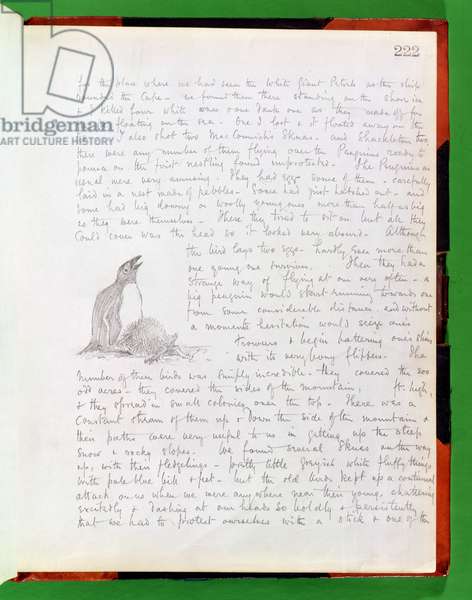 222
for the place where we had seen the White Giant Petrels as the ship
rounded the Cape - we found them there standing on the snow ice
& I killed four white & one dark one as they made off for
floating on the sea. One I lost as it floated away on the
I also shot two MacCormick's Skuas - and Shackleton two,
there were any number of them flying over the Penguins ready to
pounce on the first nestling found unprotected. The Penguins as
usual were very amusing - They had eggs some of them - carefully
laid in a nest made of pebbles - Some had just hatched out - and
some had big downy or woolly young ones more than half as big
as they were themselves - These they tried to sit on but all they
could cover was the head so it looked very absurd - Although
the bird lays two eggs - hardly ever more than
one young one survives. Then they had a
strange way of flying at one very often - a
big penguin would start running towards one
from some considerable distance, and without
a moments hesitation would seize ones
trowsers & begin battering ones shins
with its very bony flippers - The
number of these birds was simply incredible - they covered the 200
odd acres - they covered the sides of the mountain, ft. high,
& they spread in small colonies over the top. There was a
constant stream of them up & down the side of the mountain &
their paths were very useful to us in getting up the steep
snow & rocky slopes. We found several Skuas on the way
up, with their fledgelings - pretty little greyish white fluffy things
with pale blue bill & feet - but the old birds kept up a continual
attack on us when we were anywhere near their young, chattering
excitedly & dashing at our heads so boldly & persistently
that we had to protect ourselves with a stick & one of the
bridgeman
ART CULTURE HISTORY